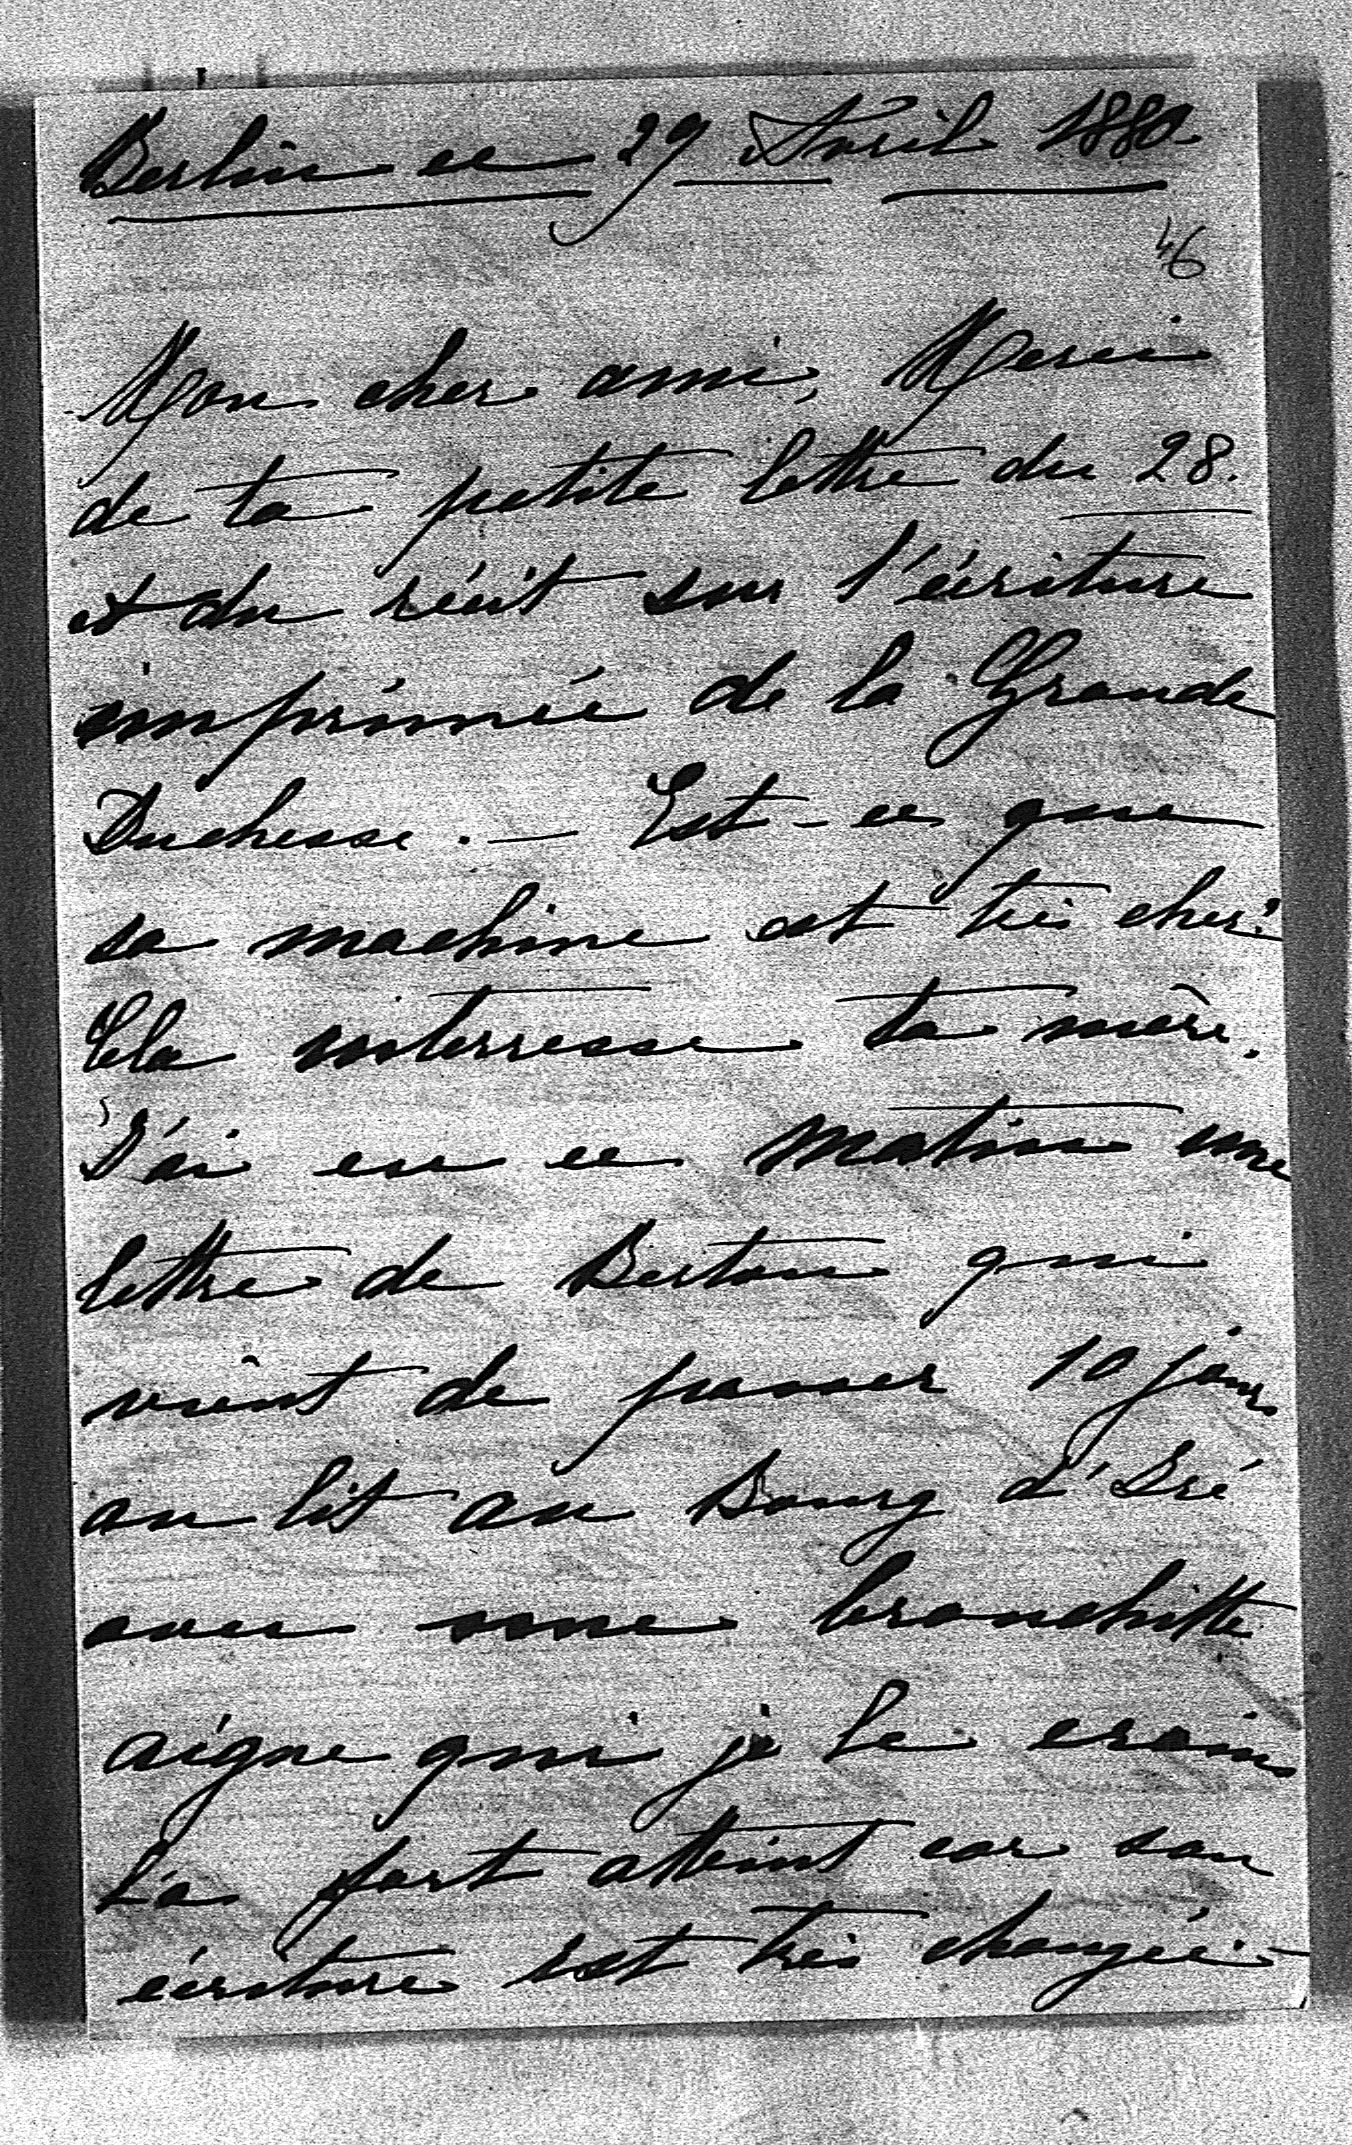 Berlin ce 29 Avril 1880
46
Mon cher ami, Merci
de ta petite lettre du 28.
et du récit sur l'écriture
imprimée de la Grande
Duchesse. — Est-ce que
sa machine est très cher?
Cela interresse ta mère.
J'ai eu ce matin une
lettre de Berton qui
vient de passer 10 jours
au lit au Bourg d'Iré
avec une bronchitte
aigue qui je le crains
l'a fort atteint car son
écriture est très changée